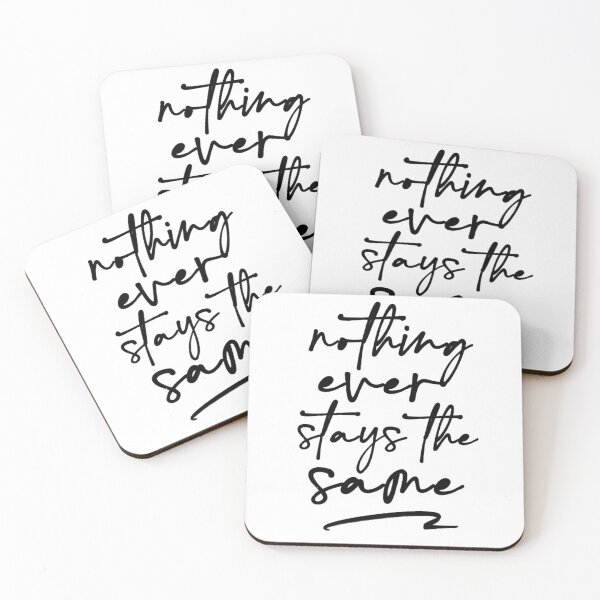 nothing
ever
the
nothing
ever
stays the
nothing
ever
stays the
same
nothing
ever
stays the
same